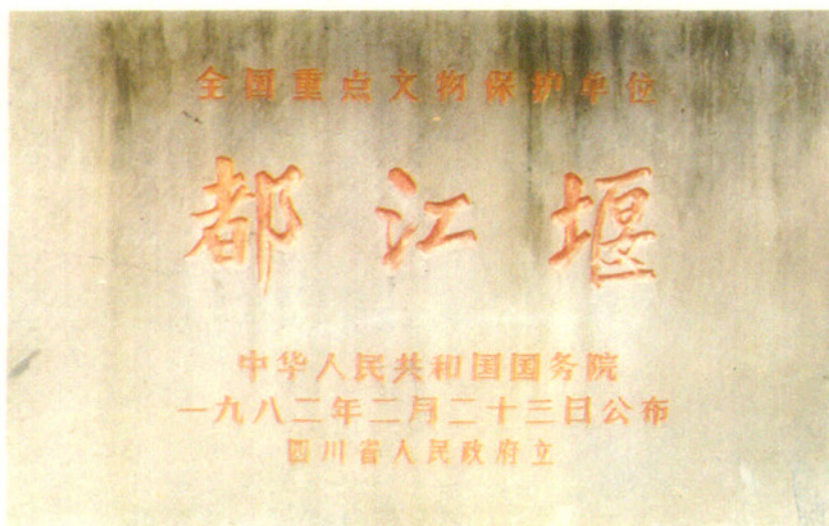 全国重点文物保护单位
都江堰
中华人民共和国国务院
一九八二年二月二十三日公布
四川省人民政府立